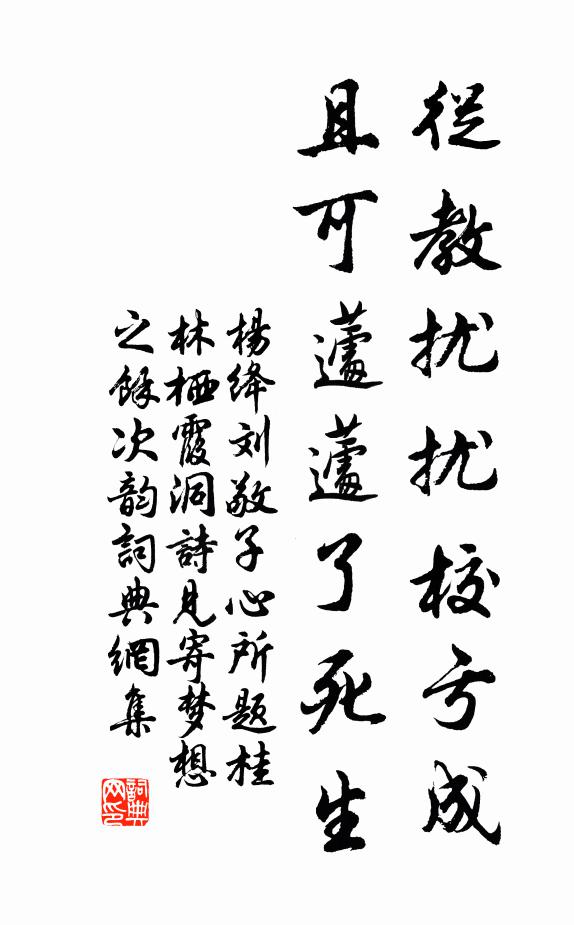 從教扰扰校亏成
且可蘧蘧了死生
楊绛刘敬子心所題桂
林栖霞洞詩見寄梦想
之餘次韵詞典網集
詞典
网印